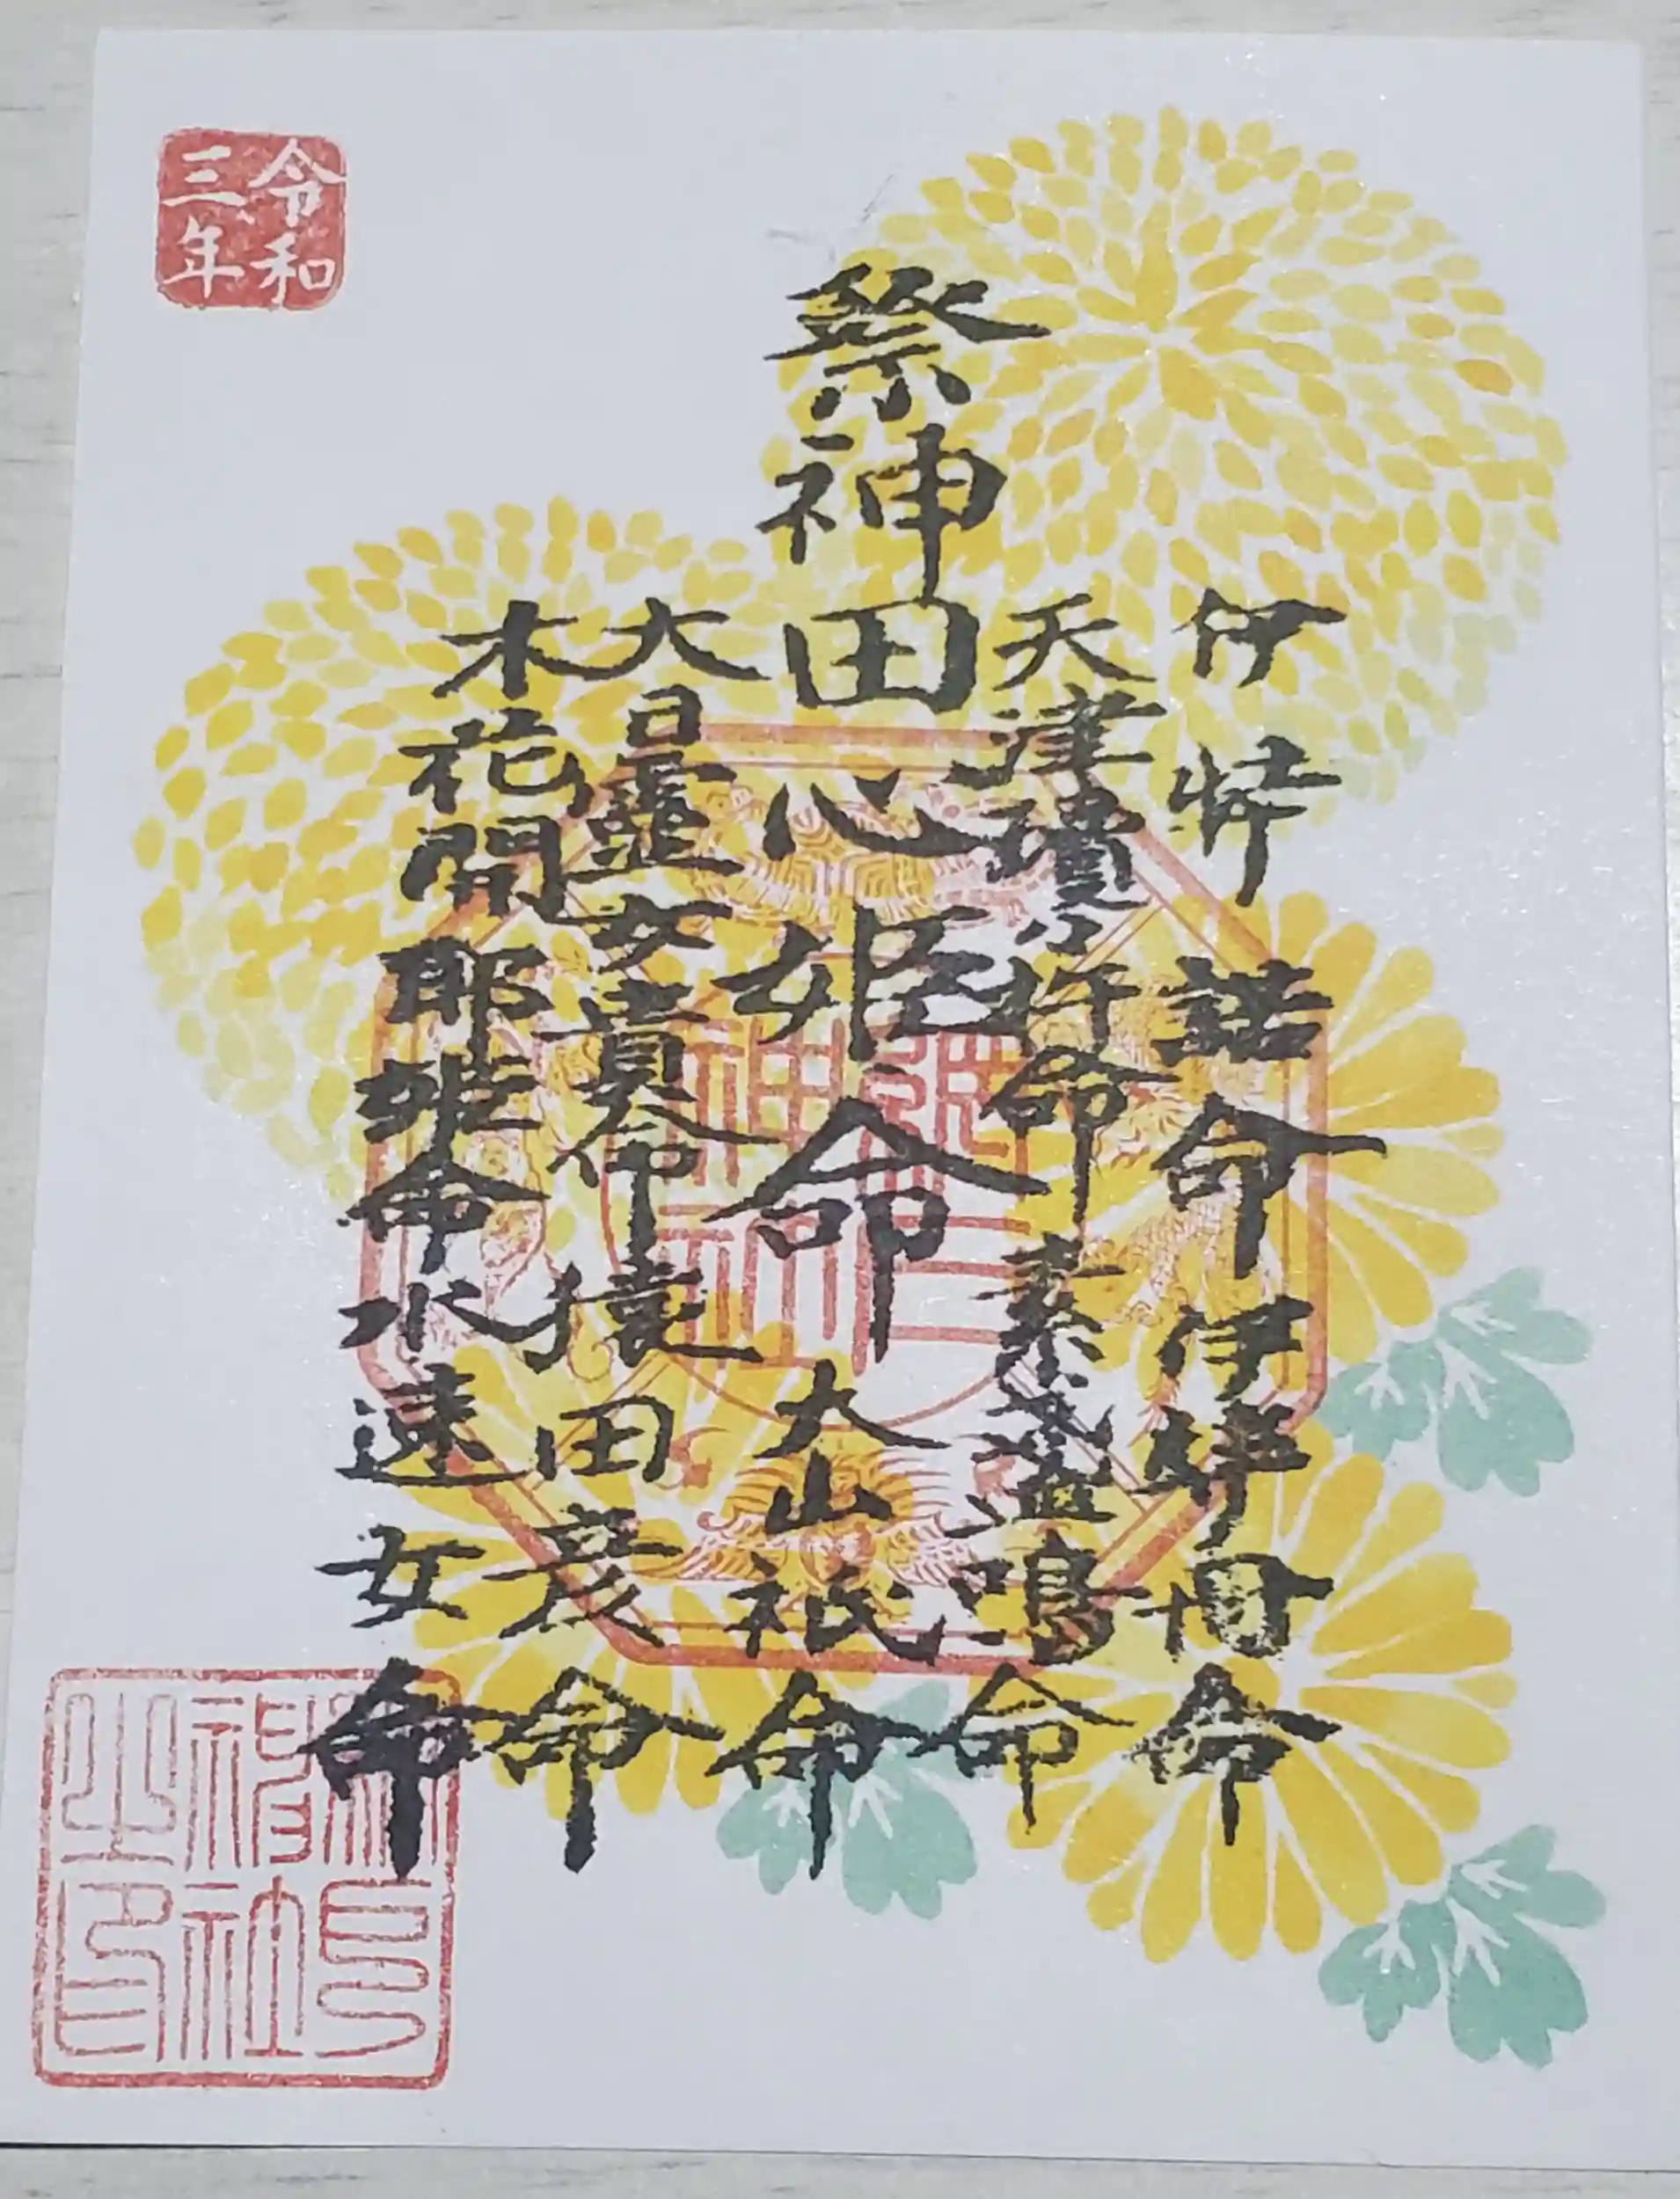 令和三年
伊弉諾命 伊弉冊命
天津瓊々杵命 素盞鳴命
祭神 田心姫命 大山祇命
大日霊女貴命 猿田彦命
木花開耶姫命 水速女命